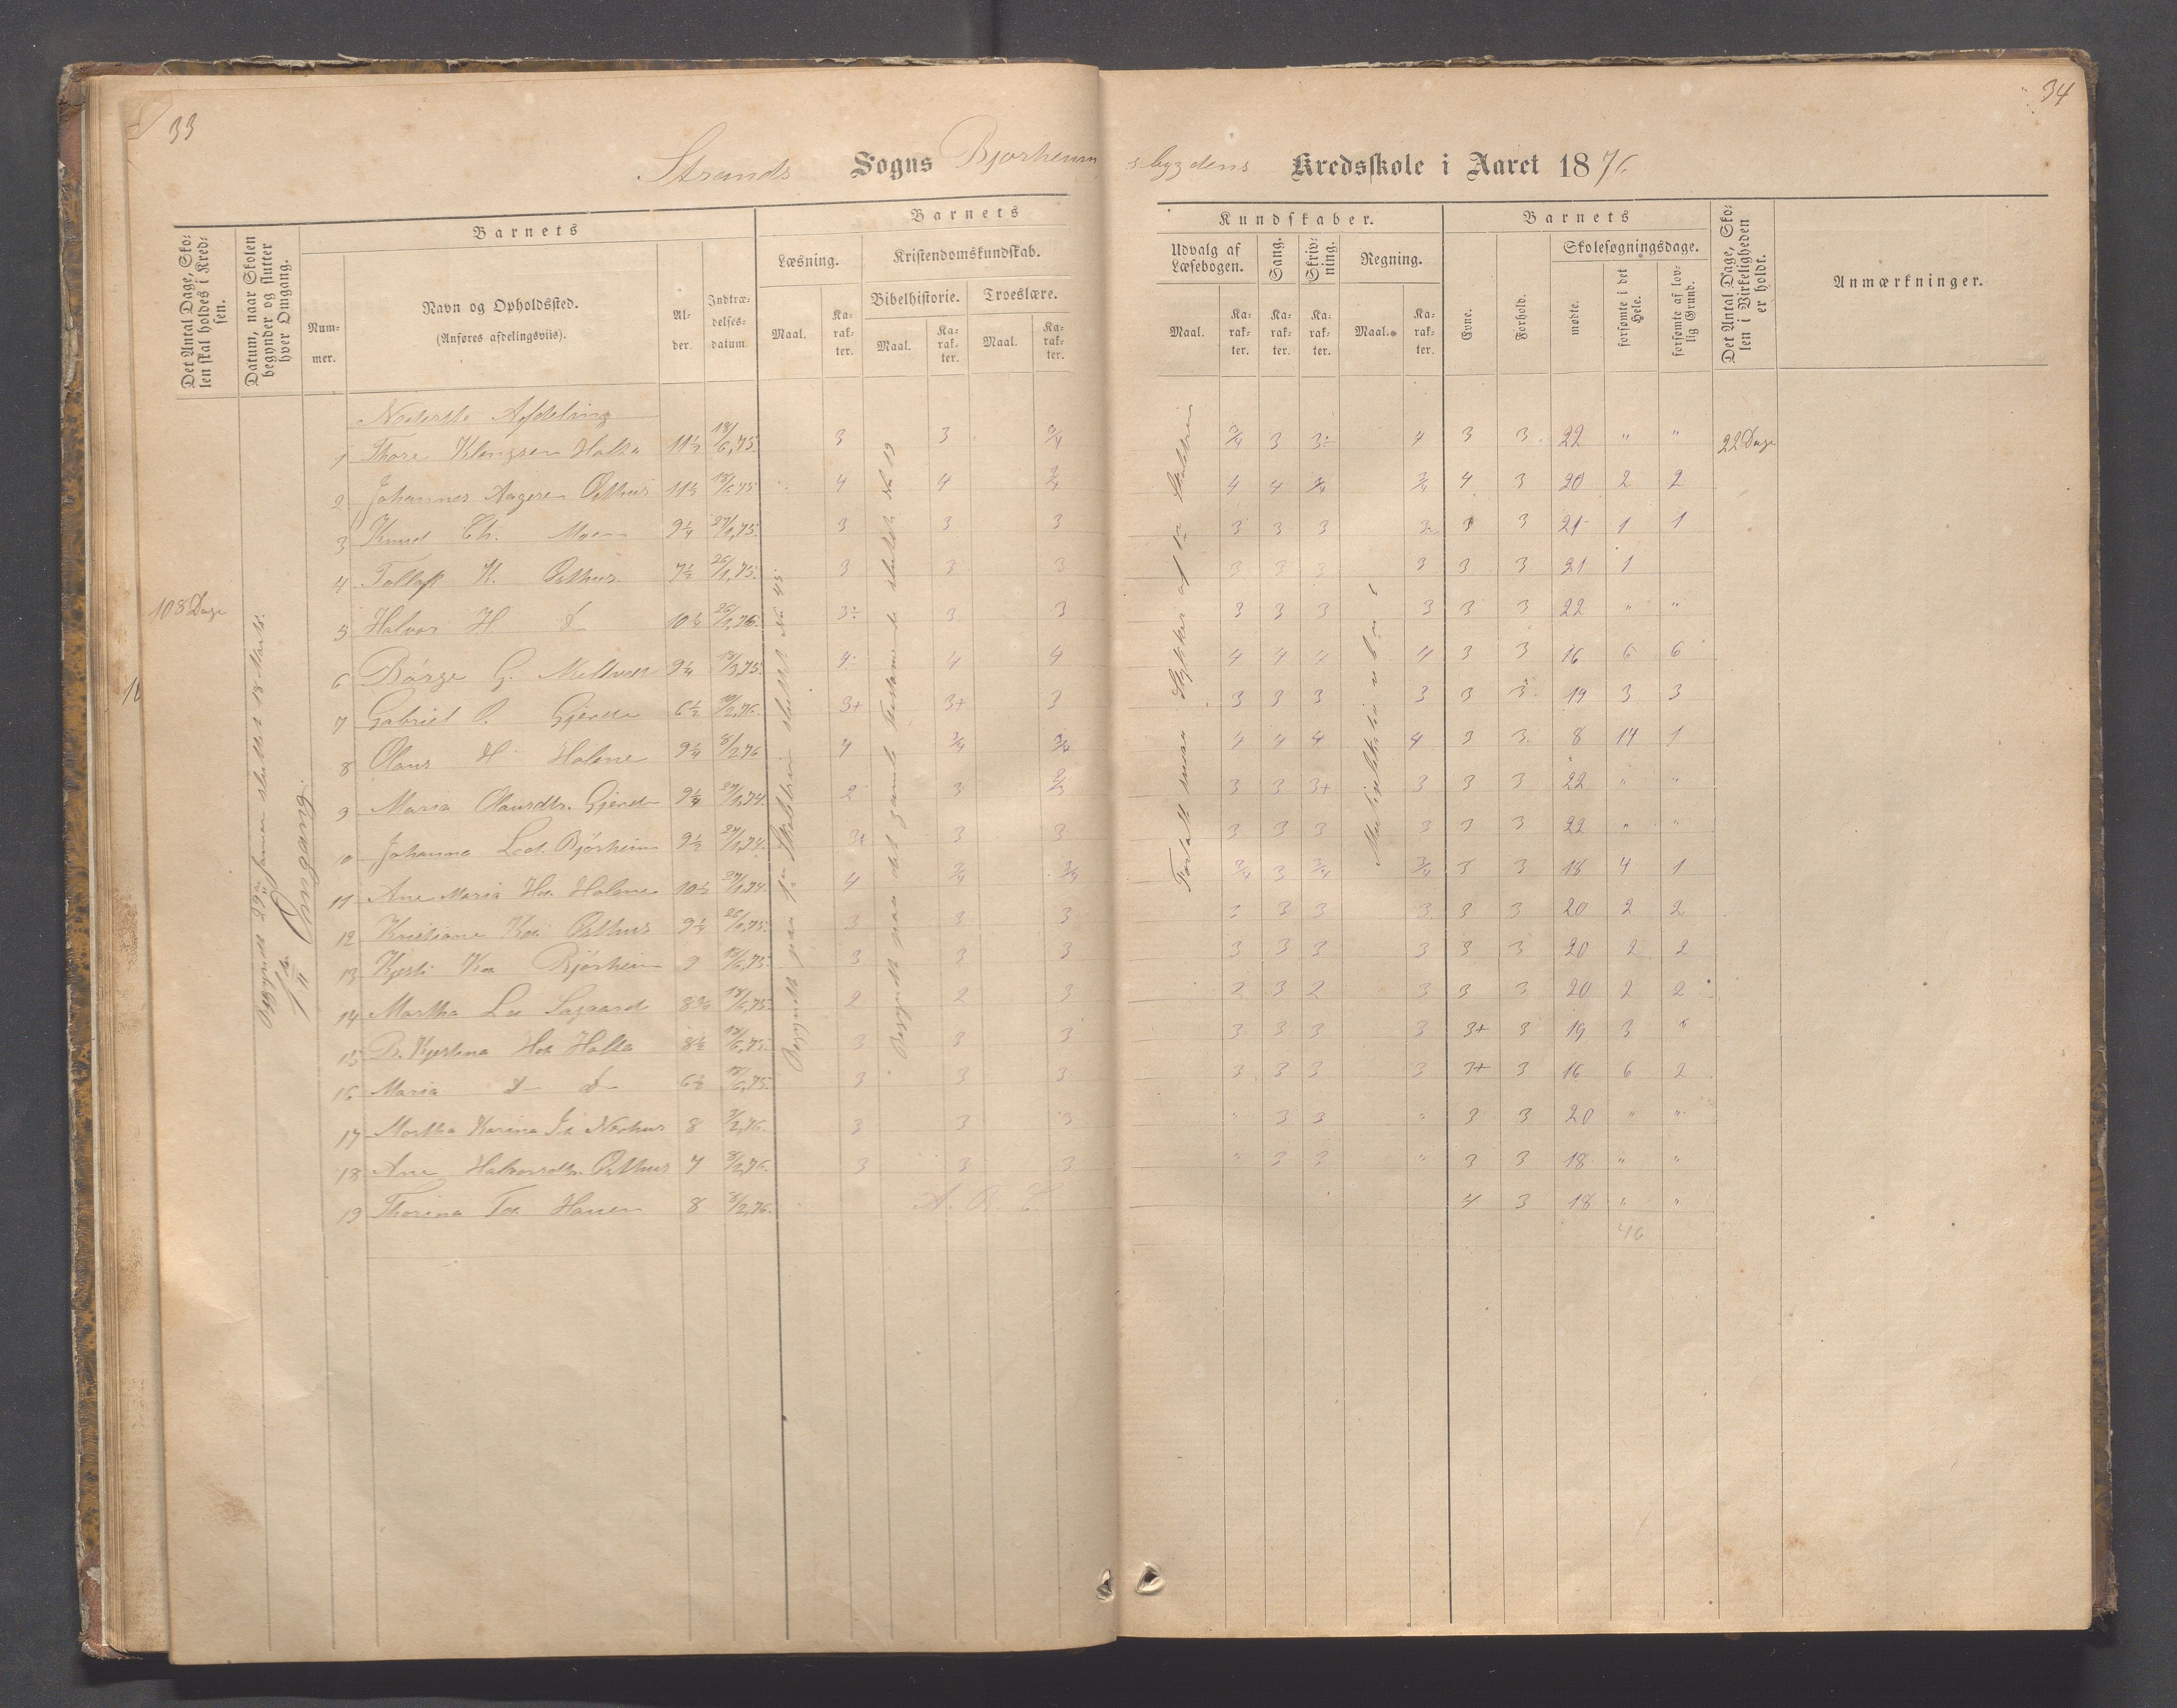 33
34
Strands Sogns Bjørheims bygdens Kredsskole i Aaret 1876
Det Antal Dage, Sko-
len skal holdes i Kred-
sen.
Datum, naar Skolen
begynder og slutter
hver Omgang.
Barnets
Num-
mer.
Navn og Opholdssted.
(Anføres afdelingsviis).
Al-
der.
Indtræ-
delses-
datum
Barnets
Læsning.
Maal.
Ka-
rak-
ter.
Kristendomskundskab.
Bibelhistorie.
Troeslære.
Maal.
Ka-
rak-
ter.
Maal.
Ka-
rak-
ter.
Kundskaber.
Udvalg af
Læsebogen.
Maal.
Ka-
rak-
ter.
Sang.
Ka-
rak-
ter.
Skriv-
ning.
Ka-
rak-
ter.
Regning.
Maal.
Ka-
rak-
ter.
Barnets
Evne.
Forhold.
Skolesøgningsdage.
mødte.
forsømte i det
Hele.
forsømte af lov-
lig Grund.
Det Antal Dage, Sko-
len i Virkeligheden
er holdt.
Anmærkninger.
108 Dage
Nederste Afdeling
1 Thore Klengsen Holta 11½ 18/6,75. 3 3 3/4 3/4 3 3÷ 4 3 3 22 " " 22 Dage
2 Johannes Aagesen Østhus 11½ 18/6,75 4 4 3/4 4 4 3/4 3/4 4 3 20 2 2
3 Knud Ch. Moen 9¼ 27/1,75. 3 3 3 3 3 3 3 3 3 21 1 1
4 Tollef K. Østhus 7½ 26/1,75. 3 3 3 3 3 3 3 3 3 21 1
5 Halvor H. 10½ 26/1,76. 3÷ 3 3 3 3 3 3 3 3 22 " "
6 Børge G. Meltveit 9¼ 18/3,75. 4 4 4 4 4 4 4 3 3 16 6 6
7 Gabriel O. Gjerde 6½ 10/2,76. 3+ 3+ 3 3 3 3 3 3 3 19 3 3
8 Olaus H Holene 9¼ 8/2,76 4 3/4 3/4 4 4 4 4 3 3 8 14 1
9 Maria Olausdtr. Gjerde 9¼ 27/1,74. 2 3 2/3 3 3 3+ 3 3 3 22 " "
10 Johanna Ldt. Bjørheim 9½ 27/1,74. 3÷ 3 3 3 3 3 3 3 3 22 " "
11 Ane Maria Hd. Holene 10½ 27/1,74. 4 3/4 3/4 3/4 3 3/4 3/4 3 3 18 4 1
12 Kristiane Kd. Østhus 9¼ 26/1,75. 3 3 3 3 3 3 3 3 3 20 2 2
13 Kjersti Kd. Bjørheim 9 18/6,75. 3 3 3 3 3 3 3 3 3 20 2 2
14 Martha Ld Sagaard 8¾ 18/6,75. 2 2 3 2 3 2 3 3 3 20 2 2
15 B. Kjestina Hd. Holta 8½ 18/6,75. 3 3 3 3 3 3 3 3+ 3 19 3 "
16 Maria 6½ 18/6,75. 3 3 3 3 3 3 3 3+ 3 16 6 2
17 Martha Karina Nerhus 8 3/2,76. 3 3 3 " 3 3 " 3 3 20 " "
18 Ane Halvorsdtr. Østhus 7 8/2,76. 3 3 3 " 3 3 " 3 3 18 " "
19 Thorina Td. Hauen 8 8/2,76. A. B. C. 4 3 18 " "
46